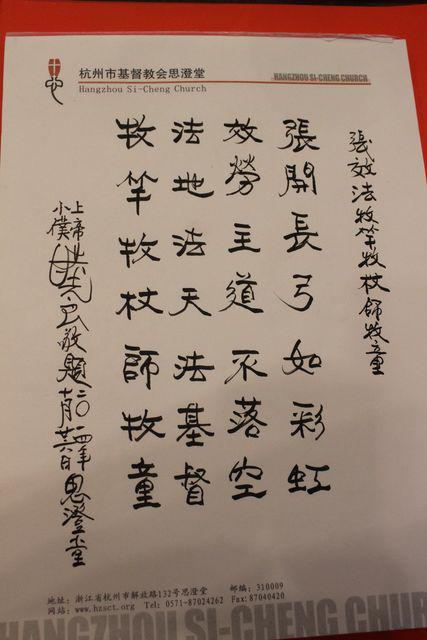 杭州市基督教会思澄堂
Hangzhou Si-Cheng Church
HANGZHOU SI-CHENG CHURCH
張效法牧竿牧杖師牧童
張開長弓如彩虹
效勞主道不落空
法地法天法基督
牧竿牧杖師牧童
上帝
小僕
敬題二〇一四年
思澄堂
地址：浙江省杭州市解放路132号思澄堂 邮编：310009
网站：www.hzsct.org Tel：0571-87024262 Fax:87040420
HANGZHOU SI-CHENG CHUR